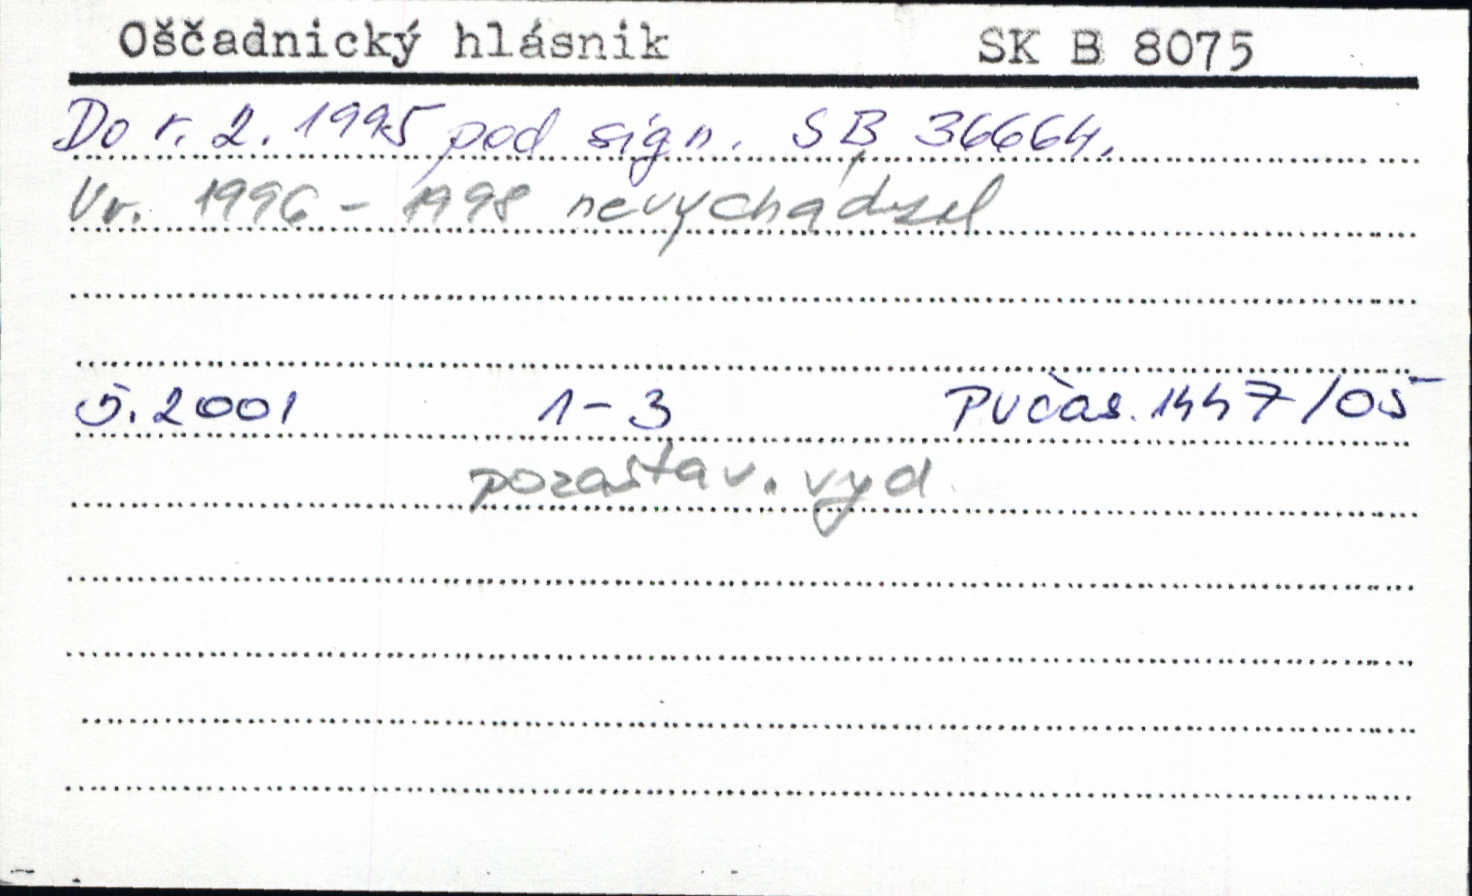 Oščadnický hlásnik SK B 8075
Do r. 2. 1995 pod sign. SB 36664.
V r. 1996 - 1998 nevychádzal
5. 2001 1-3 PVčas. 1447/05
pozastav. vyd.